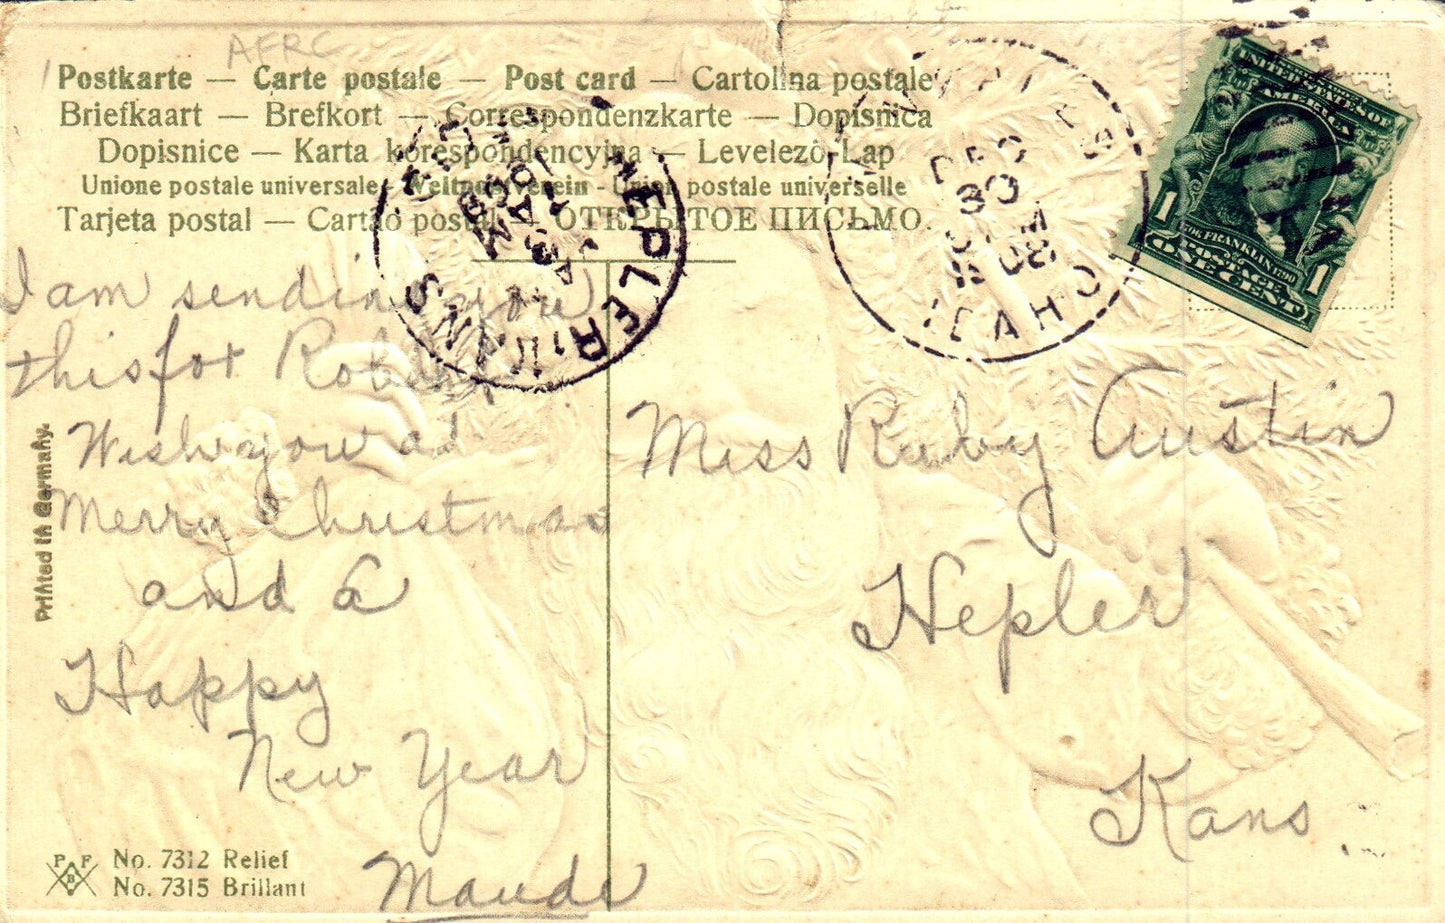 AFRC
Postkarte — Carte postale — Post card — Cartolina postale
Briefkaart — Brefkort — Correspondenzkarte — Dopisnica
Dopisnice — Karta korespondencyjna — Levelező-Lap
Unione postale universale - Weltpostverein - Union postale universelle
Tarjeta postal — Cartão postal — ОТКРЫТОЕ ПИСЬМО.
DEC
30
1908
IDAHO
HEPLER
KANS
UNITED STATES OF AMERICA
1 FRANKLIN 1
POSTAGE
ONE CENT
I am sending you
this for
Wish you
Merry Christmas
and a
Happy
New Year
Maude
Miss Ruby Austin
Hepler
Kans
Printed in Germany.
P F B
No. 7312 Relief
No. 7315 Brillant